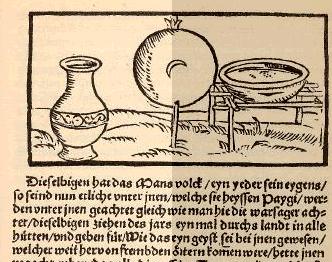 Dieselbigen hat das Mans volck / eyn yeder sein eygens /
so seind nun etliche vnter jnen / welche sie heyssen Paygi / wer-
den vnter jnen geachtet gleich wie man hie die warsager ach-
tet / dieselbigen ziehen des jars eyn mal durchs landt in alle
hütten / vnd geben für / Wie das eyn geyst sei bei jnen gewesen /
welcher weit her von frembden örtern komen were / hette jnen